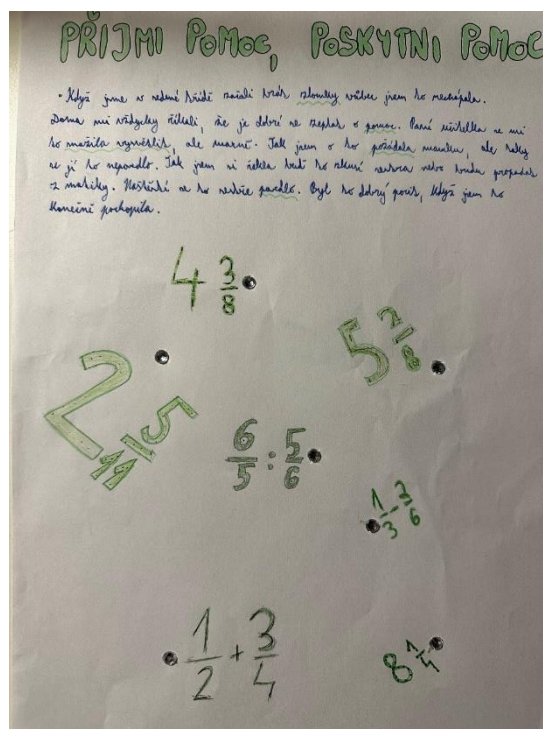 PŘIJMI POMOC, POSKYTNI POMOC
• Když jsme v sedmé třídě začali brát zlomky vůbec jsem to nechápala.
Doma mi vždycky říkali, že je dobré se zeptat o pomoc. Paní učitelka se mi
to snažila vysvětlit, ale marně. Tak jsem o to požádala mamku, ale taky
se jí to nepovedlo. Tak jsem si řekla buď to zkusí sestra nebo budu propadat
z matiky. Naštěstí se to sestře povedlo. Byl to dobrý pocit, když jsem to
konečně pochopila.
4 3/8
5 7/8
2 5/11
6/5 : 5/6
1/3 - 2/6
1/2 + 3/4
8 1/4